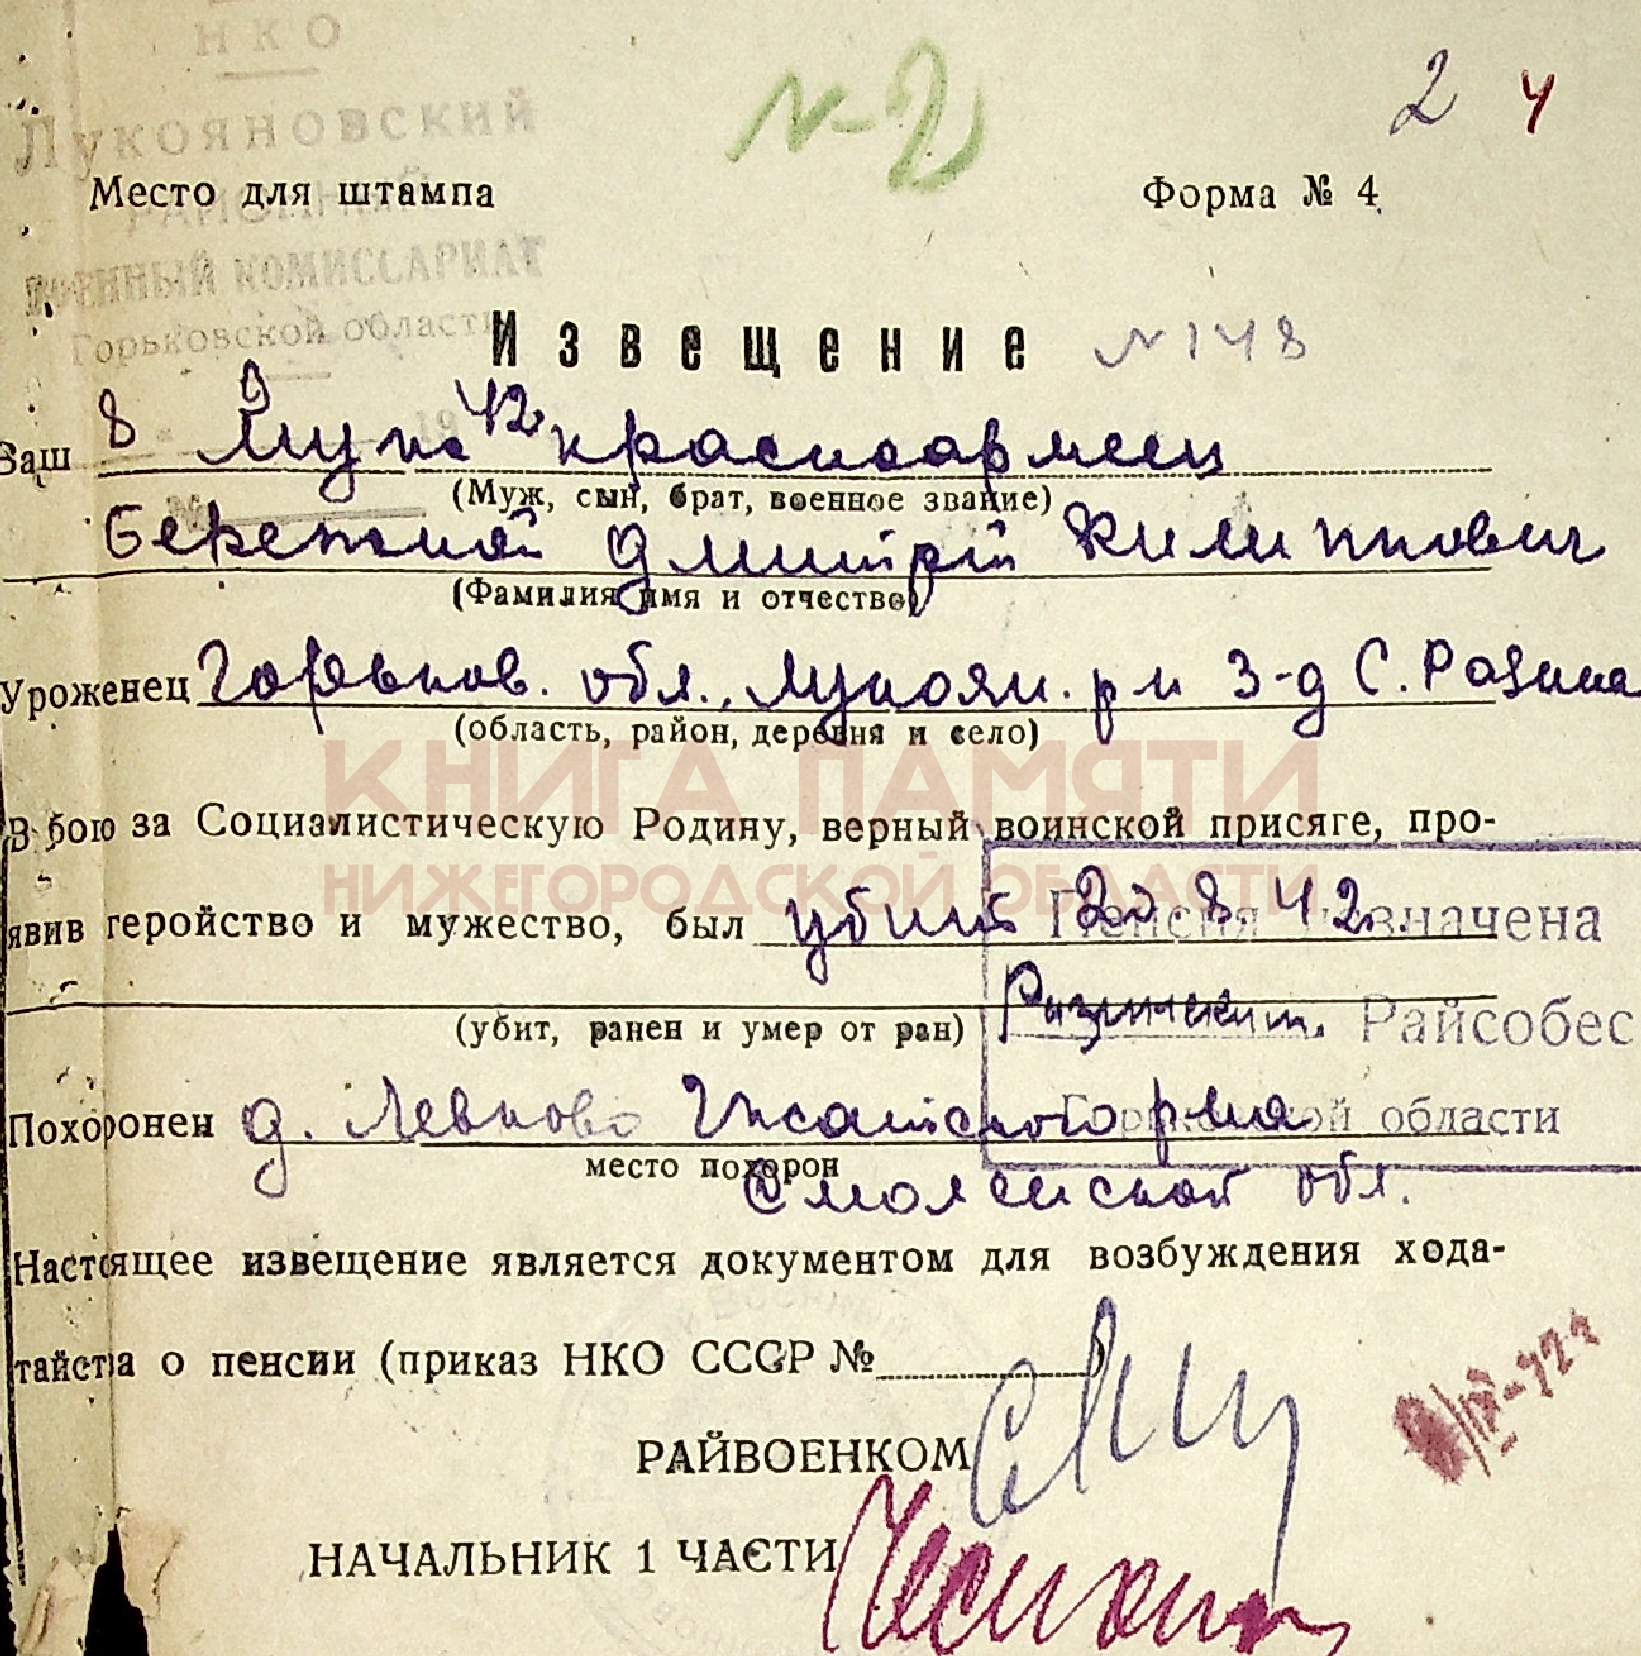 НКО
N-2
2 4
Лукояновский
Место для штампа
Форма № 4
РАЙОННЫЙ
ВОЕННЫЙ КОМИССАРИАТ
Горьковской области
Извещение N 148
8 9 1942
Ваш муж красноармеец
(Муж, сын, брат, военное звание)
№
Бережной Дмитрий Филиппович
(Фамилия имя и отчество)
Уроженец Горьков. обл., Лукоян. р-н З-д С. Разина
(область, район, деревня и село)
КНИГА ПАМЯТИ
В бою за Социалистическую Родину, верный воинской присяге, про-
НИЖЕГОРОДСКОЙ ОБЛАСТИ
явив геройство и мужество, был убит 20 8 42
Пенсия назначена
(убит, ранен и умер от ран)
Райсобес
Похоронен д. Левково Гжатского р-на
Горьковской области
место похорон
Смоленской обл.
Настоящее извещение является документом для возбуждения хода-
тайства о пенсии (приказ НКО СССР №)
РАЙВОЕНКОМ
НАЧАЛЬНИК 1 ЧАСТИ